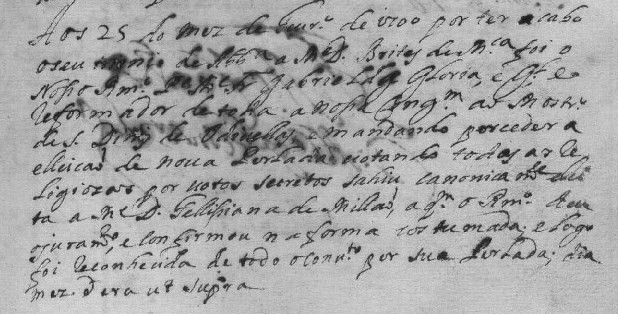 Aos 25 do mez de Feur.º de 1700 por ter acaba
o seu trienio de Abb.ª a M.e D. Brites de M.ca foi o
Nosso Rm.º P.e M. Fr. Gabriel da Gloria, e G.l e
Reformador de toda a Nossa Cong.m ao Mostr.º
de S. Dinis de Odivellas, e mandando proceder a
elleicaõ de noua Perlada, votando todas as Re
ligiozas por uotos secretos sahiu canonicam.te elei
ta a M.e D. Fellipiana de Millaõ, a q.m o Rm.º deu
o juram.to, e confirmou na forma costumada; e logo
foi reconhecida de todo o conu.to por sua Perlada; dia
mez. d era ut supra